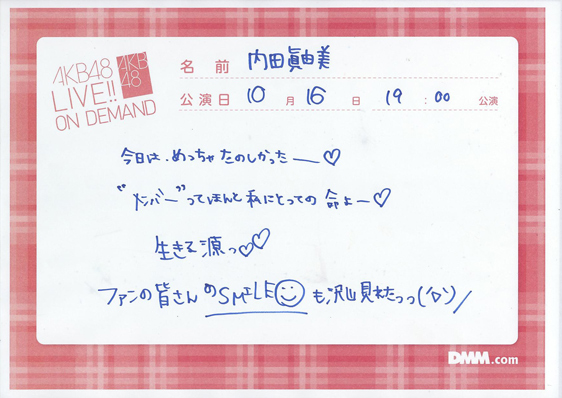 AKB48
LIVE!!
ON DEMAND
AKB
48
名 前 内田眞由美
公演日 10 月 16 日 19 : 00 公演
今日は、めっちゃたのしかったー♡
“メンバー”ってほんと私にとっての命よー♡
生きる源っ♡♡
ファンの皆さんのSMILE☺も沢山見れたっっ('Д')/
DMM.com